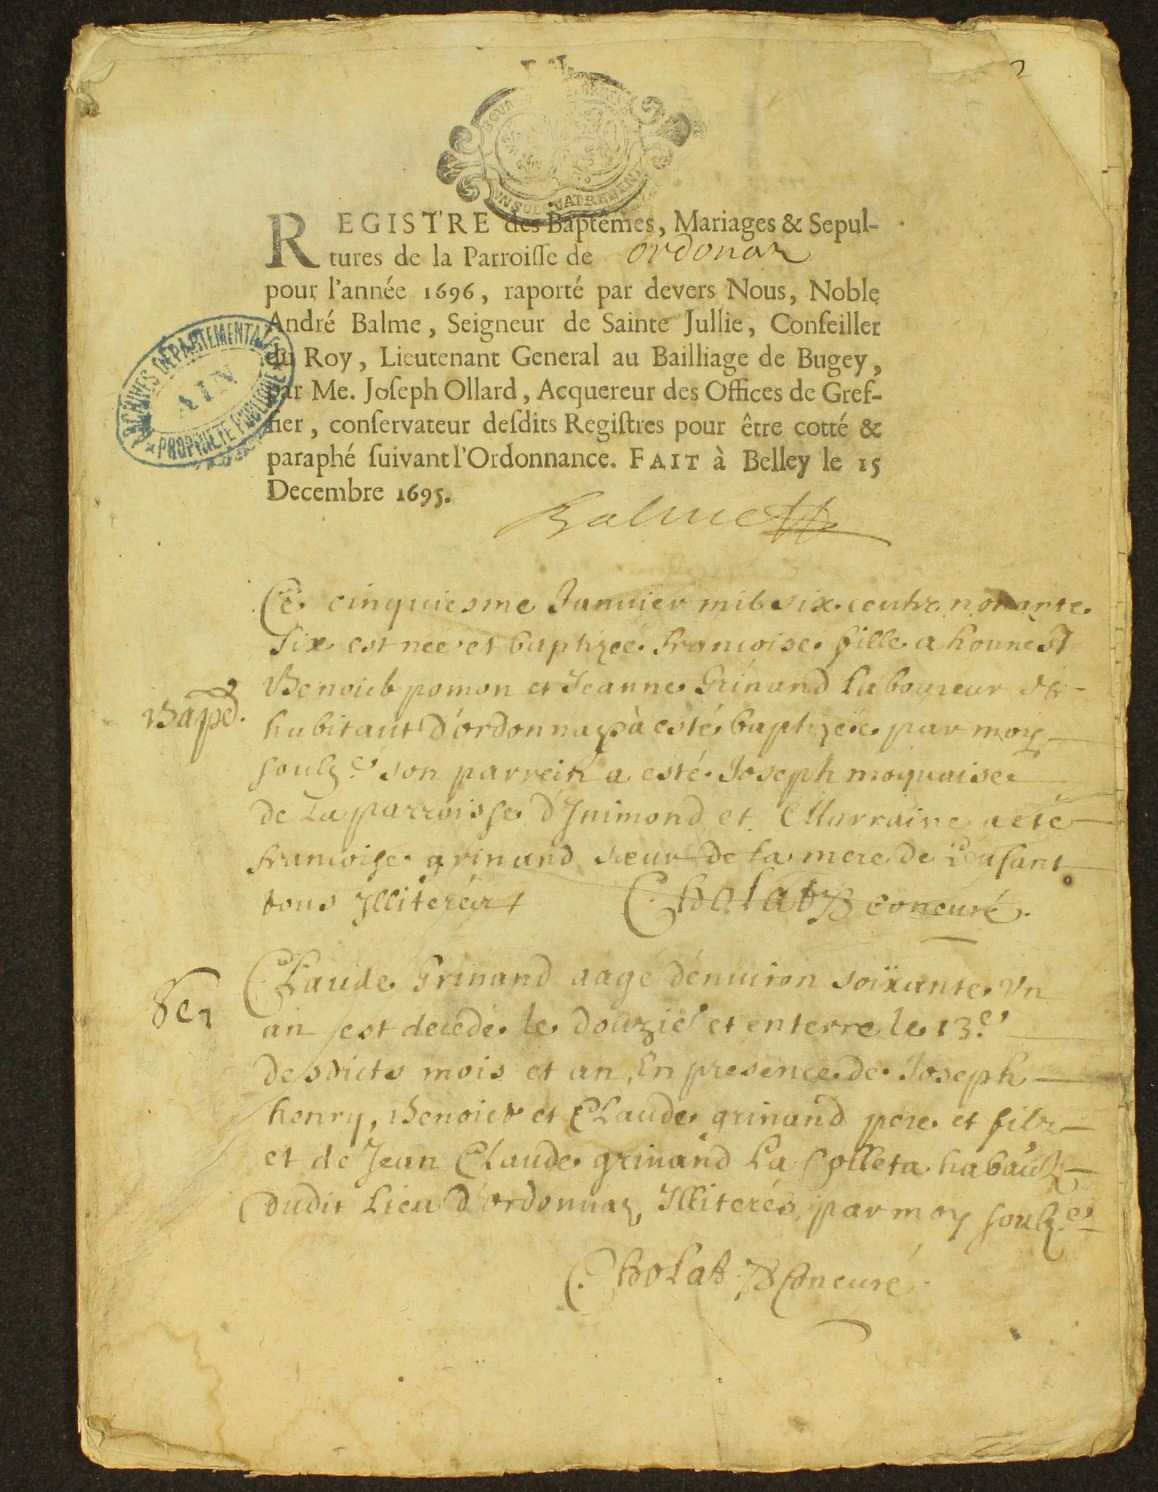 2
REGISTRE des Baptêmes, Mariages & Sepul-
tures de la Parroisse de ordonaz
pour l'année 1696, raporté par devers Nous, Noble
André Balme, Seigneur de Sainte Jullie, Conseiller
du Roy, Lieutenant General au Bailliage de Bugey,
par Me. Joseph Ollard, Acquereur des Offices de Gref-
fier, conservateur desdits Registres pour être cotté &
paraphé suivant l'Ordonnance. FAIT à Belley le 15
Decembre 1695.
Balme
ARCHIVES DÉPARTEMENTALES
AIN
PROPRIÉTÉ PUBLIQUE
Ce cinquiesme Janvier mil six centz nonante
six est nee et baptizée francoise fille a honnest
Benoict pomon et Jeanne Grinand Laboureur &
Bapt.
habitant d'ordonnaz à esté baptizée par moy
soubz.é son parrein a esté Joseph moquaise
de La parroisse d'Inimond et Marraine a eté
francoise grinand sœur de la mere de l'enfant
tous Illiterez Cholat concuré.
Claude Grinand aagé d'enuiron soixante Vn
Sep
an sest decedé le douzie et enterre le 13.e
desdicts mois et an, En presence de Joseph
henry, Benoict et Claude grinand pere et filz
et de Jean Claude grinand La Colleta
dudit Lieu d'ordonnaz, Illiterés par moy soubz.é
Cholat Concuré